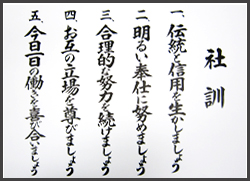 社訓
一、伝統と信用を生かしましょう
二、明るい奉仕に努めましょう
三、合理的な努力を続けましょう
四、お互の立場を尊びましょう
五、今日一日の働きを喜び合いましょう